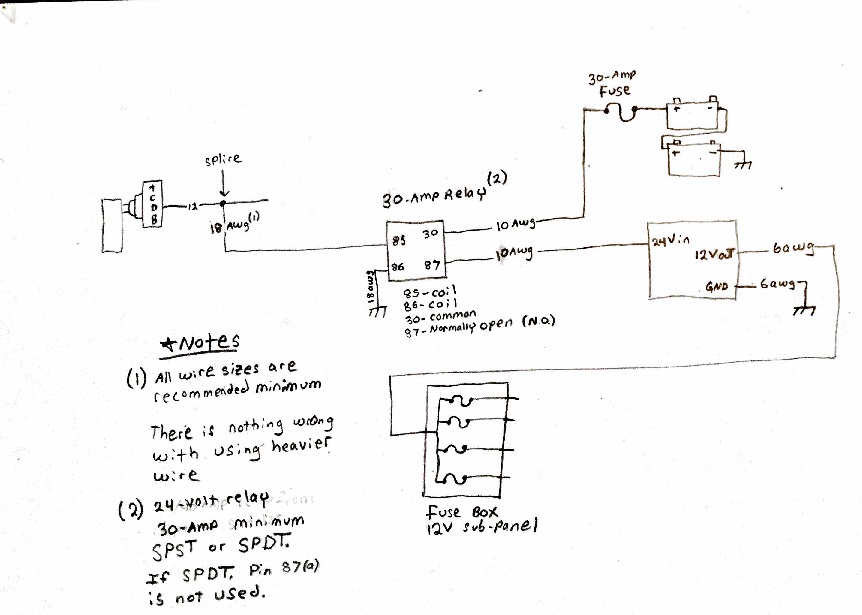 30-Amp
Fuse
+ -
+ -
splice
+
C
D
B
12
18 Awg(1)
30-Amp Relay (2)
85 30
86 87
10 Awg
10 Awg
18 awg
24Vin
12Vout
GND
6awg
6awg
85-coil
86-coil
30-common
87-Normally open (N.O.)
*Notes
(1) All wire sizes are
recommended minimum
There is nothing wrong
with using heavier
wire
(2) 24-volt relay
30-Amp minimum
SPST or SPDT.
If SPDT, Pin 87(a)
is not used.
Fuse Box
12V sub-panel